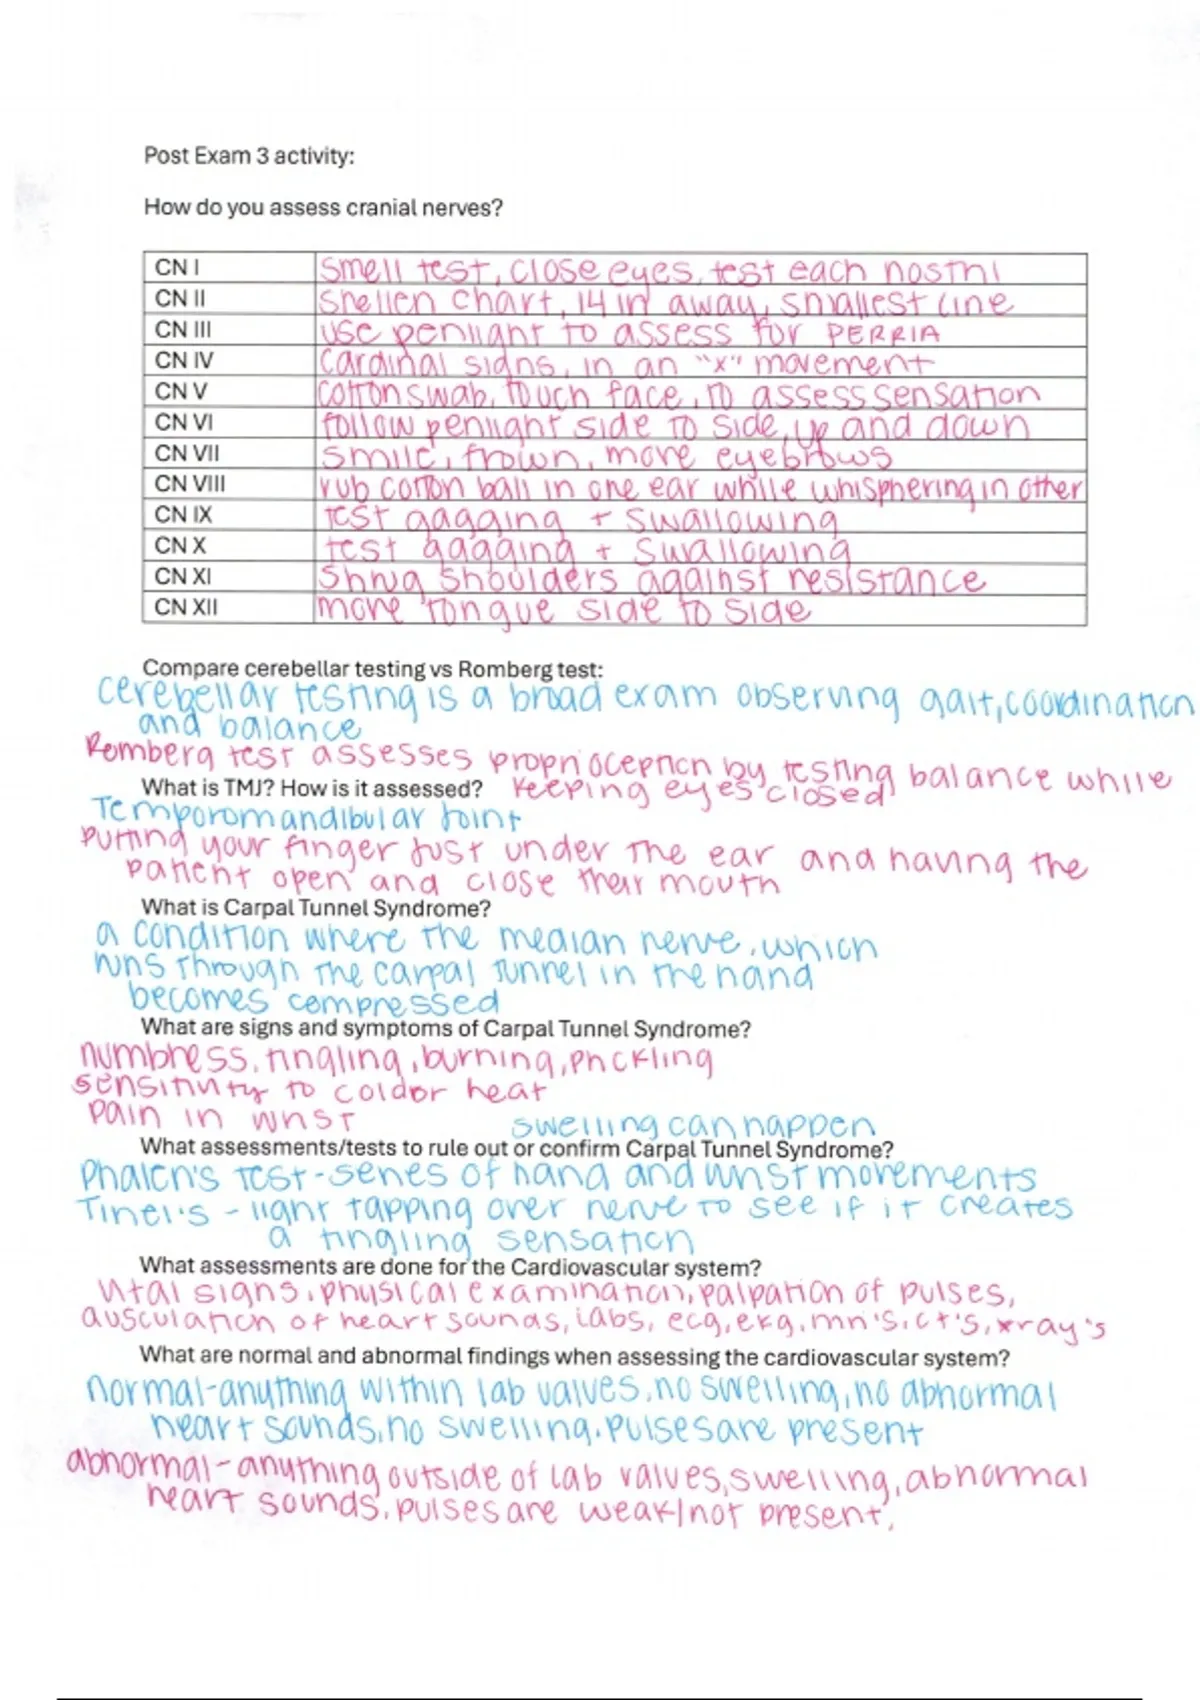 Post Exam 3 activity:
How do you assess cranial nerves?
CN I smell test, close eyes, test each nostril
CN II Snellen chart, 14 in away, smallest line
CN III use penlight to assess for PERRIA
CN IV cardinal signs, in an "x" movement
CN V cotton swab, touch face, to assess sensation
CN VI follow penlight side to side, up and down
CN VII smile, frown, move eyebrows
CN VIII rub cotton ball in one ear while whisphering in other
CN IX test gagging + swallowing
CN X test gagging + swallowing
CN XI Shrug shoulders against resistance
CN XII move tongue side to side
Compare cerebellar testing vs Romberg test:
cerebellar testing is a broad exam observing gait, coordination
and balance
Romberg test assesses proprioception by testing balance while
keeping eyes closed
What is TMJ? How is it assessed?
Temporomandibular joint
putting your finger just under the ear and having the
patient open and close their mouth
What is Carpal Tunnel Syndrome?
a condition where the median nerve, which
runs through the carpal tunnel in the hand
becomes compressed
What are signs and symptoms of Carpal Tunnel Syndrome?
numbness, tingling, burning, prickling
sensitivity to cold or heat
pain in wrist swelling can happen
What assessments/tests to rule out or confirm Carpal Tunnel Syndrome?
Phalen's test - series of hand and wrist movements
Tinel's - light tapping over nerve to see if it creates
a tingling sensation
What assessments are done for the Cardiovascular system?
vital signs, physical examination, palpation of pulses,
ausculation of heart sounds, labs, ecg, ekg, mri's, ct's, xray's
What are normal and abnormal findings when assessing the cardiovascular system?
normal-anything within lab values, no swelling, no abnormal
heart sounds, no swelling, pulses are present
abnormal-anything outside of lab values, swelling, abnormal
heart sounds, pulses are weak/not present,